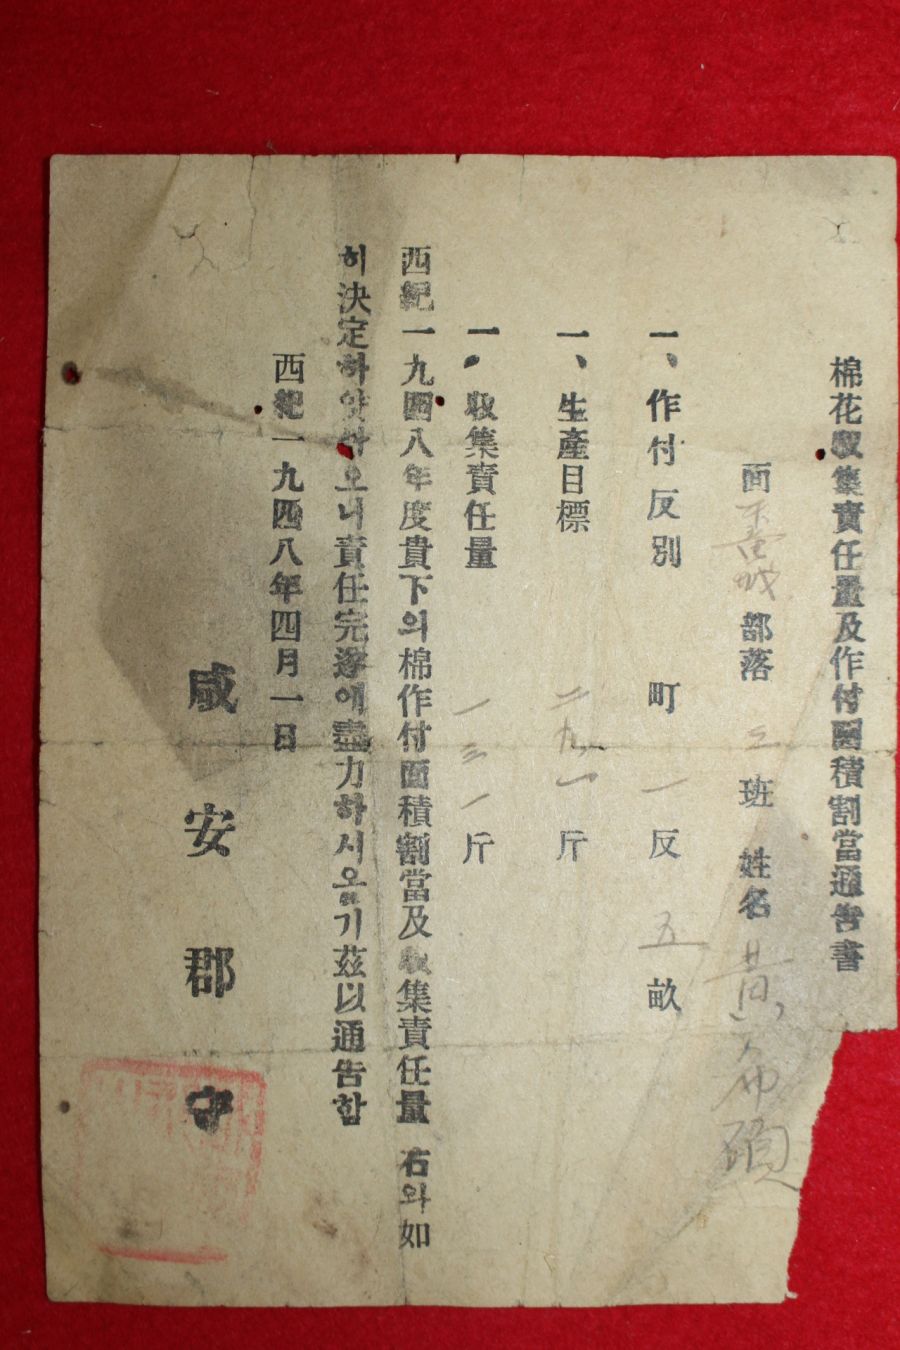 棉花收集責任量及作付面積割當通告書
面 城部落 三班 姓名 黃
一、作付反別 町一反五畝
一、生產目標 二九一斤
一、收集責任量 一三一斤
西紀一九四八年度貴下의棉作付面積割當及收集責任量 右와如
히決定하얏사오니責任完遂에盡力하시옵기茲以通告함
西紀一九四八年四月一日
咸安郡守